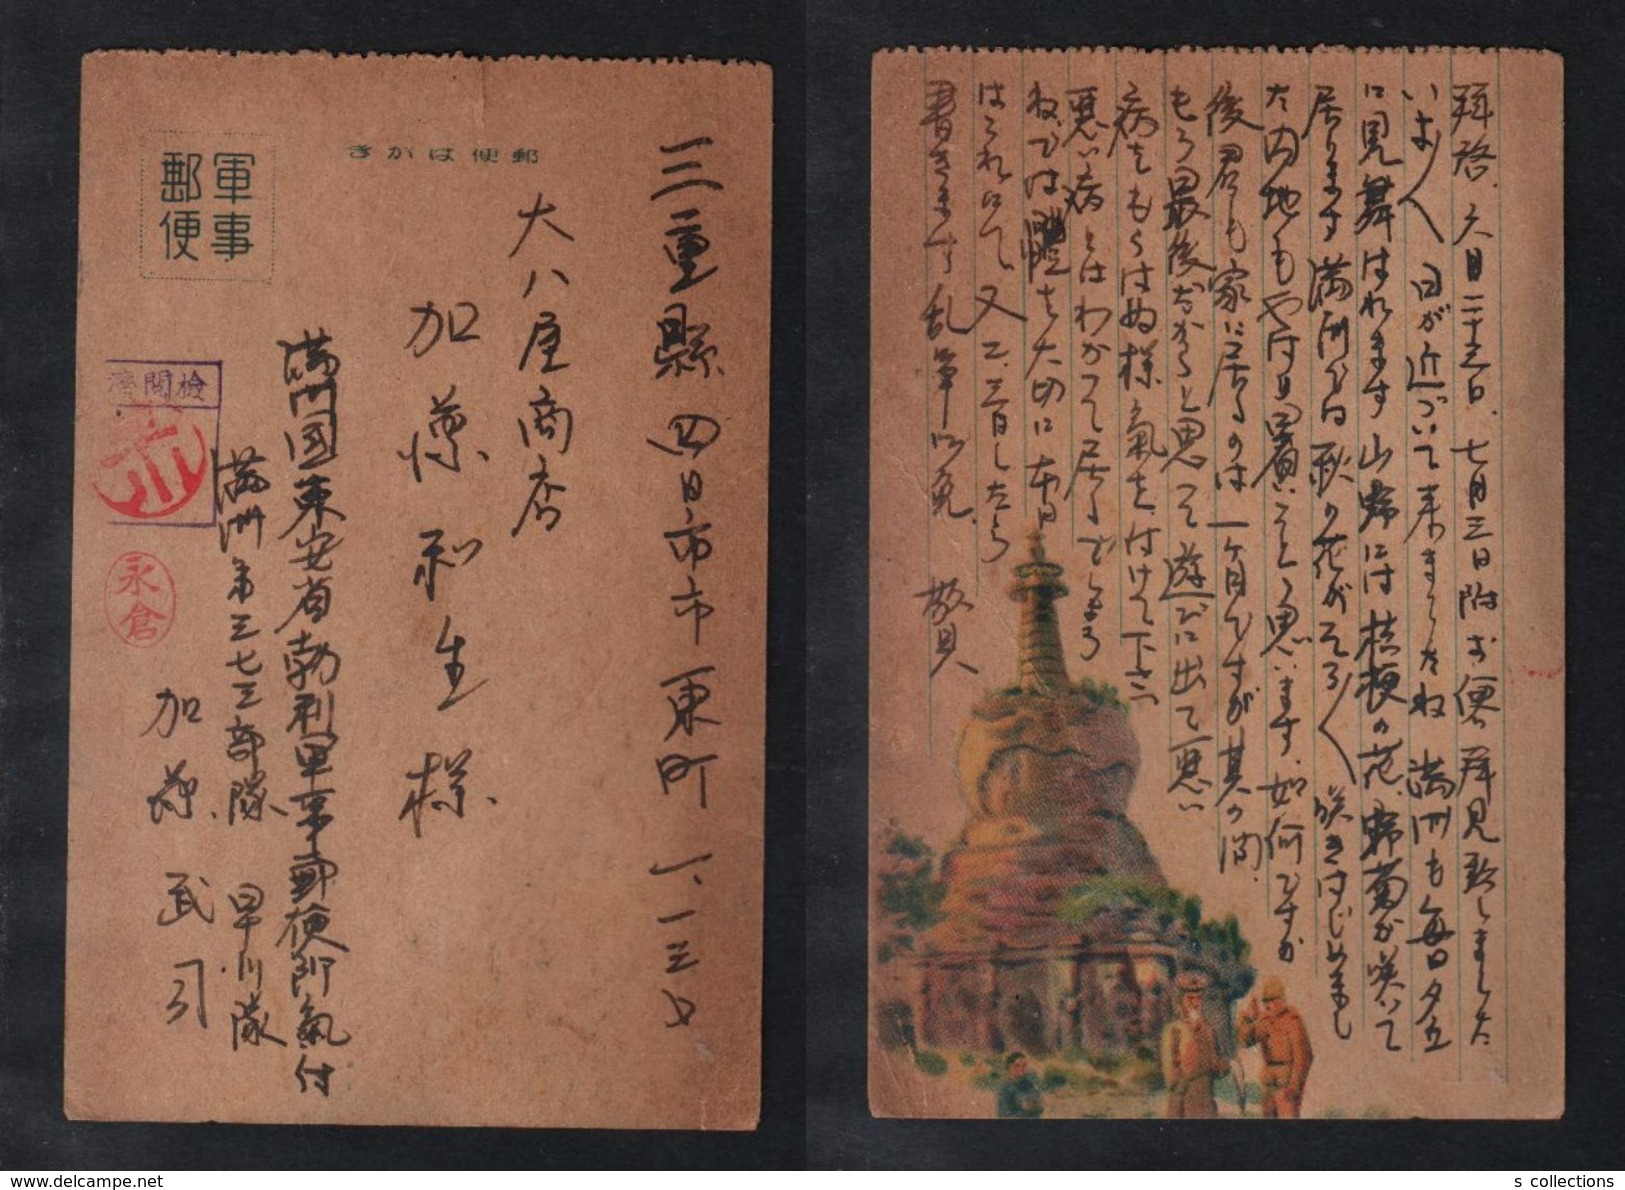 delcampe.net
s collections
軍事
郵便
郵便はがき
三重縣四日市市東町一、一三七
大八屋商店
加藤和生様
満洲国東安省勃利軍事郵便所氣付
満洲第三七三部隊 早川隊
加藤武司
檢閲濟
永倉
拝啓、六月二十三日、七月三日附お便り拝見致しました
いよ〱日が近づいて来ましたね 満洲も毎日夕立
に見舞はれます山野には桔梗の花、野菊が咲いて
居ります満洲では秋の花がそろ〱咲きはじめまし
た内地もやはり暑いことと思います、如何ですか
後君も家に居るのは一ヶ月ですが其の間、
もう最後だからと思って遊びに出て悪い
病をもらはぬ様氣を付けて下さい
悪い病とはわかって居るでせう
ねでは體を大切に本日
はこれにて、又二、三日したら
書きます乱筆御免、 敬具